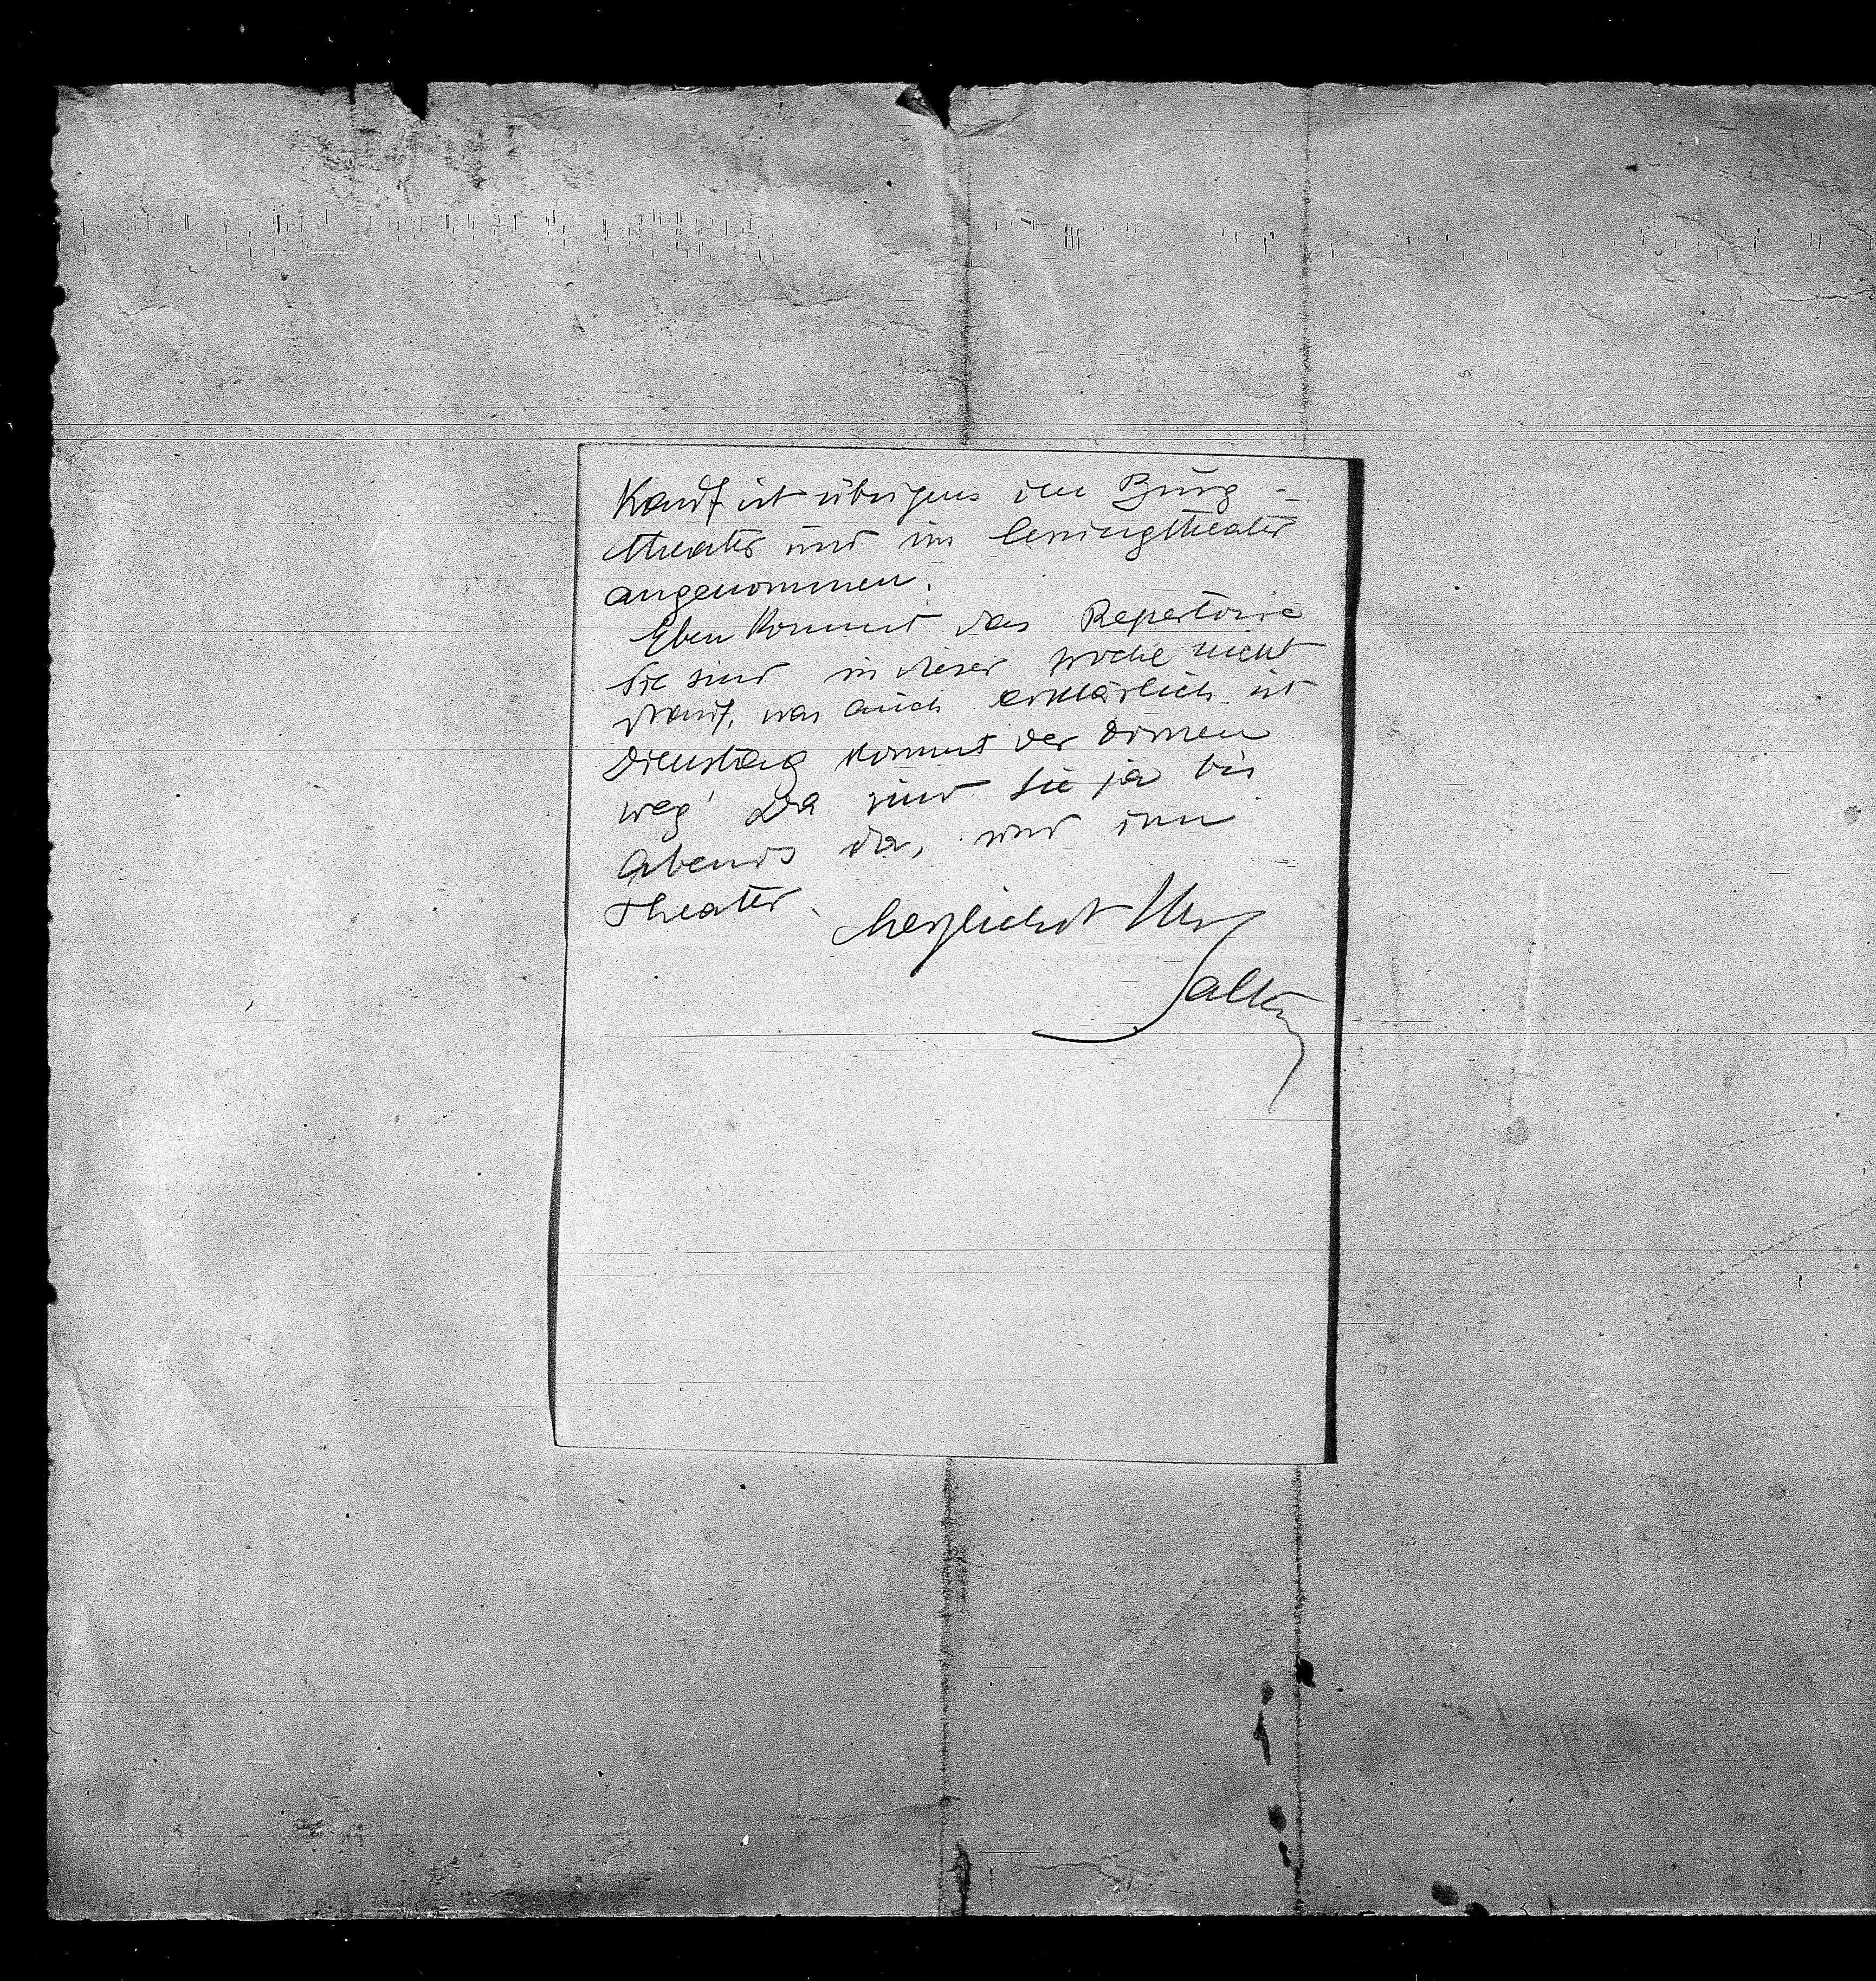 ist übrigens im Burg-
theater und im Lessingtheater
angenommen.
Eben kommt das Repertoire
Sie sind in dieser Woche nicht
drauf, was auch erklärlich ist
Dienstag kommt der Dornen
weg! Da sind Sie ja bis
Abends da, und im
Theater.
herzlichst Ihr
Salten